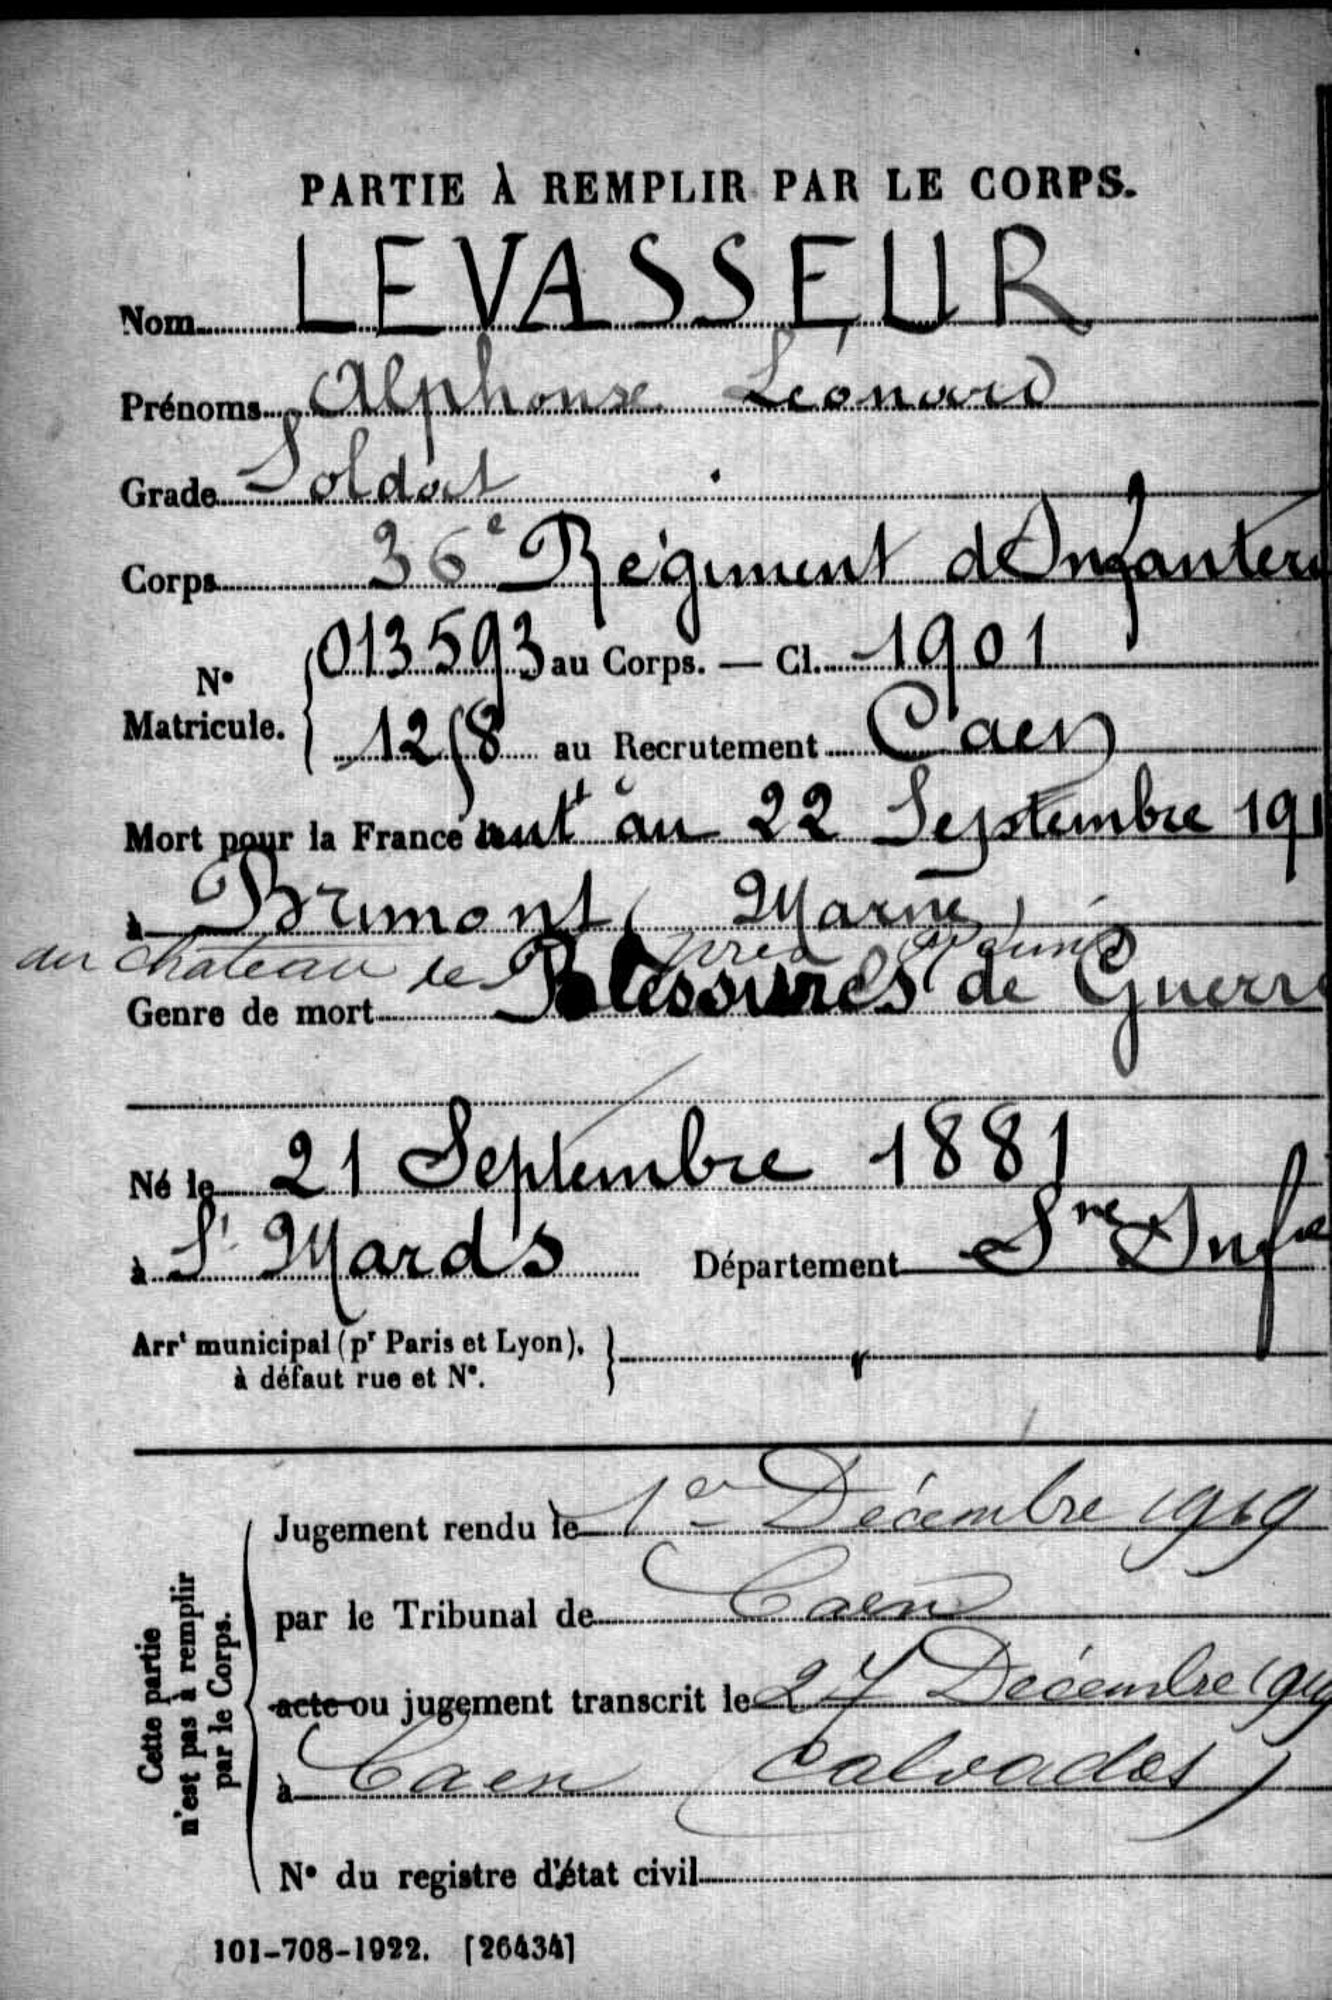 PARTIE À REMPLIR PAR LE CORPS.
Nom LEVASSEUR
Prénoms Alphonse Léonard
Grade Soldat
Corps 36e Régiment d'Infanterie
013593 au Corps. — Cl. 1901
N°
Matricule.
1258 au Recrutement Caen
Mort pour la France au 22 Septembre 191
à Brimont (Marne)
au chateau de près
Genre de mort Blessures de Guerre
Né le 21 Septembre 1881
à St Mards Département Sre Infre
Arrt municipal (pr Paris et Lyon),
à défaut rue et N°.
Jugement rendu le 1er Décembre 1919
par le Tribunal de Caen
acte ou jugement transcrit le 27 Décembre 1919
à Caen (Calvados)
N° du registre d'état civil
Cette partie
n'est pas à remplir
par le Corps.
101-708-1922. [26434]